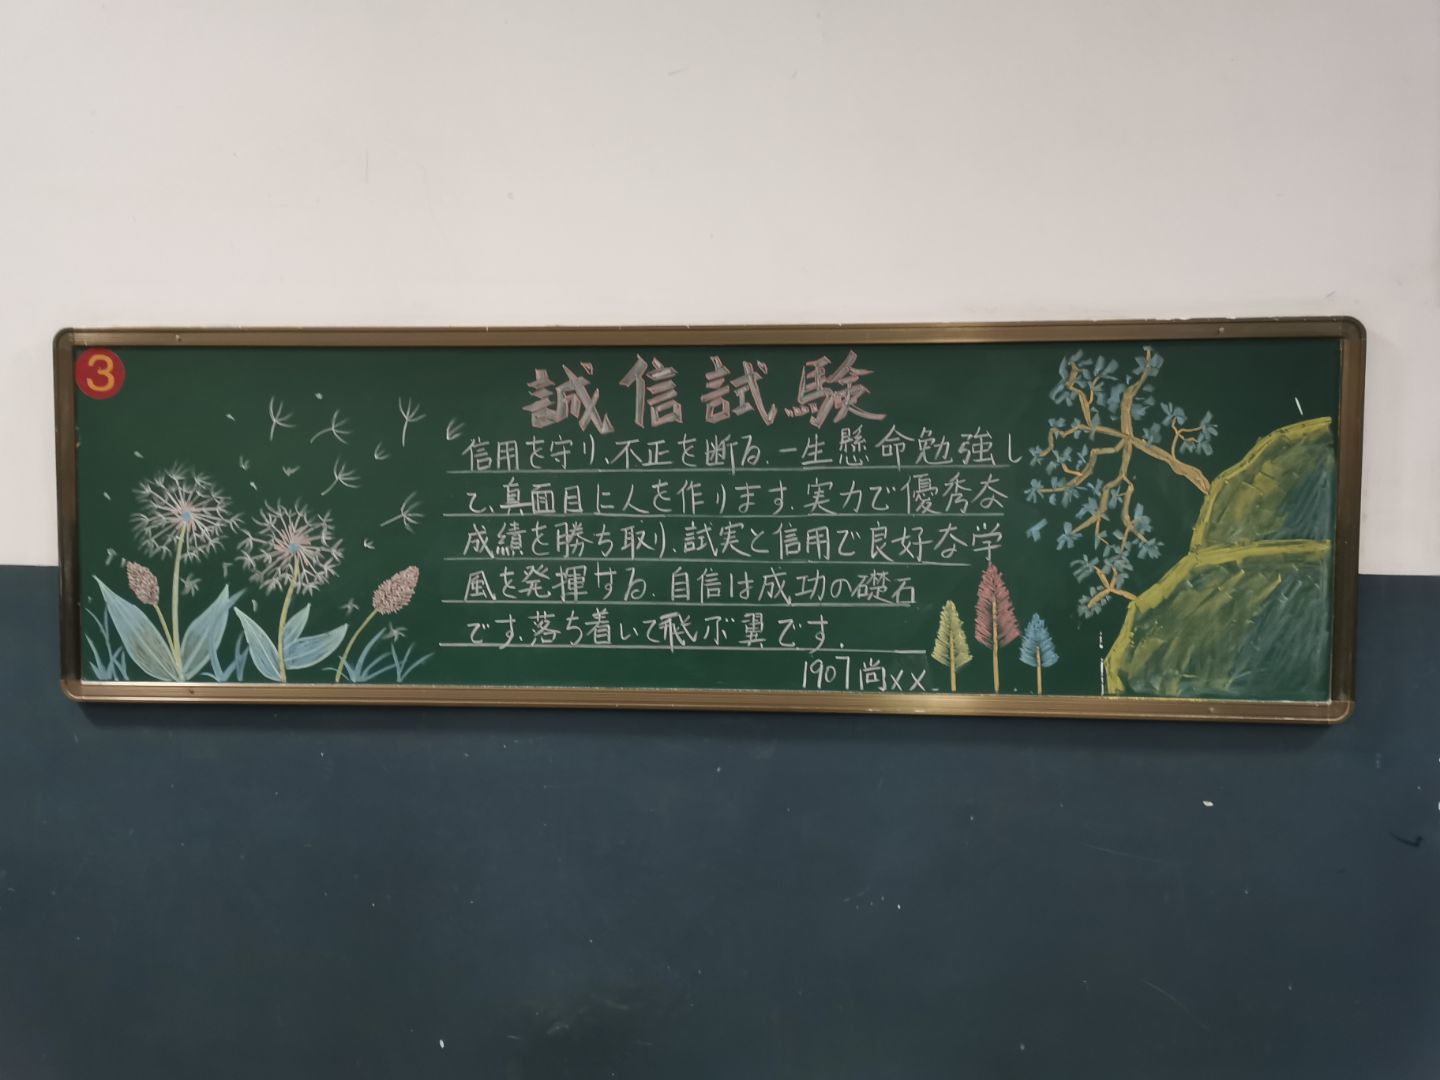 3
誠信試験
信用を守り、不正を断る、一生懸命勉強し
て、真面目に人を作ります、実力で優秀な
成績を勝ち取り、試実と信用で良好な学
風を発揮する、自信は成功の礎石
です、落ち着いて飛ぶ翼です.
1907尚xx